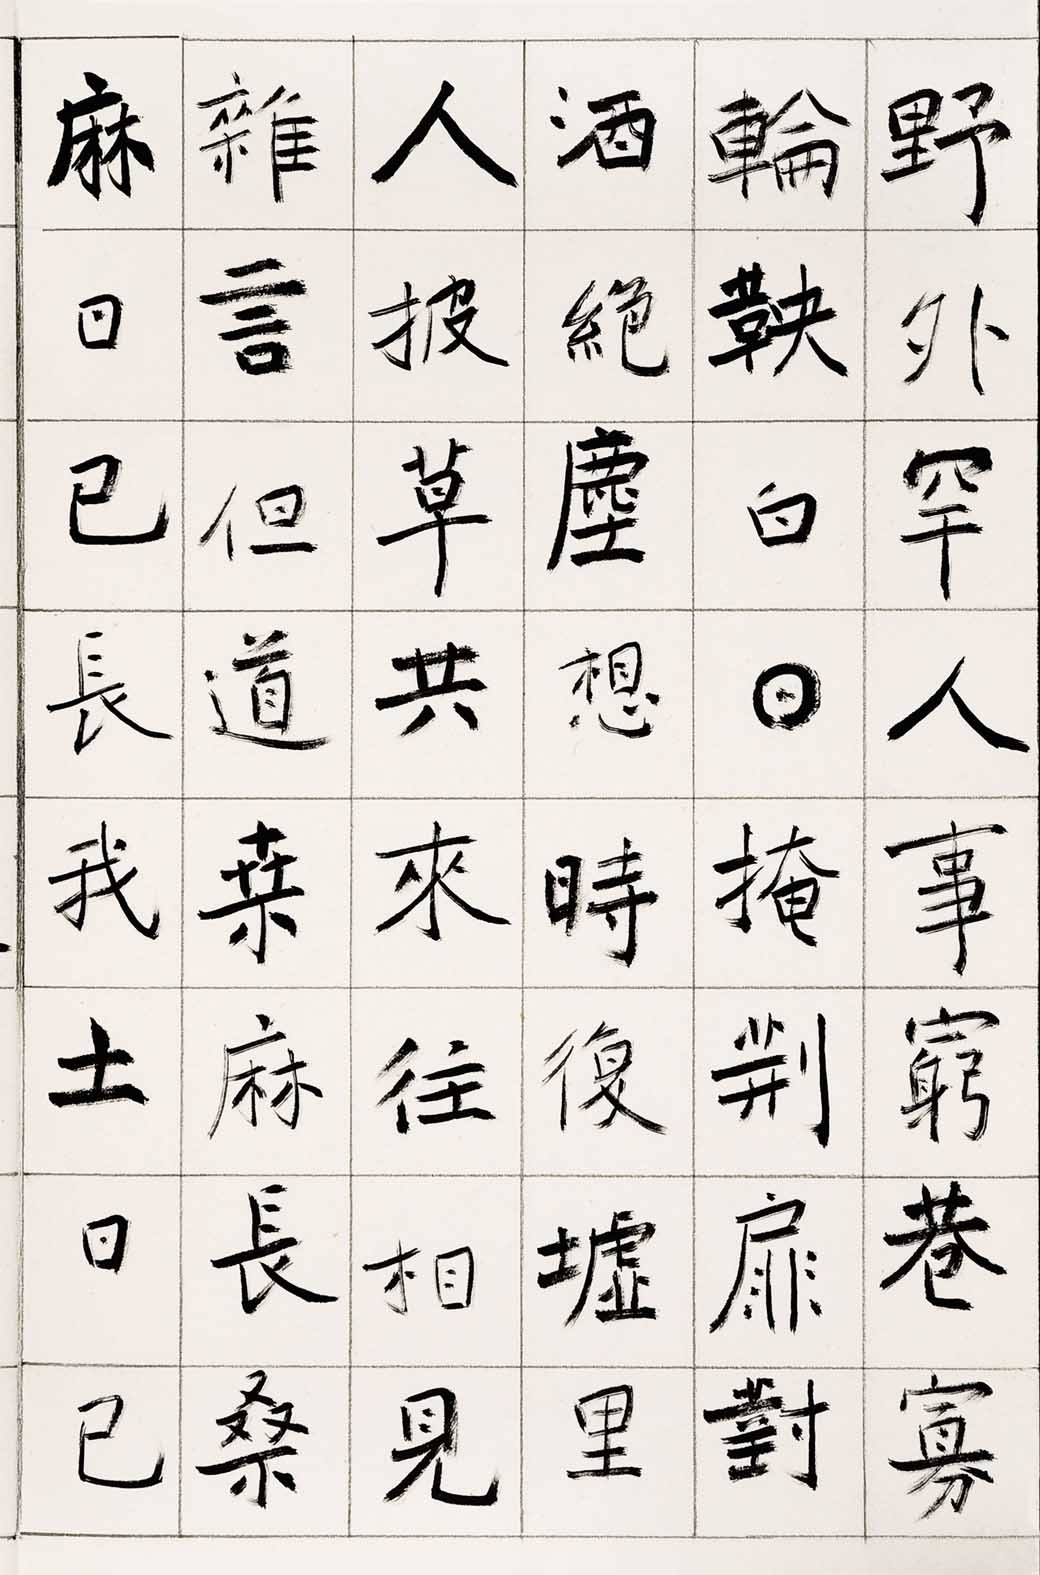 野外罕人事窮巷寡
輪鞅白日掩荆扉對
酒絕塵想時復墟里
人披草共來往相見
雜言但道桒麻長桑
麻日已長我土日已